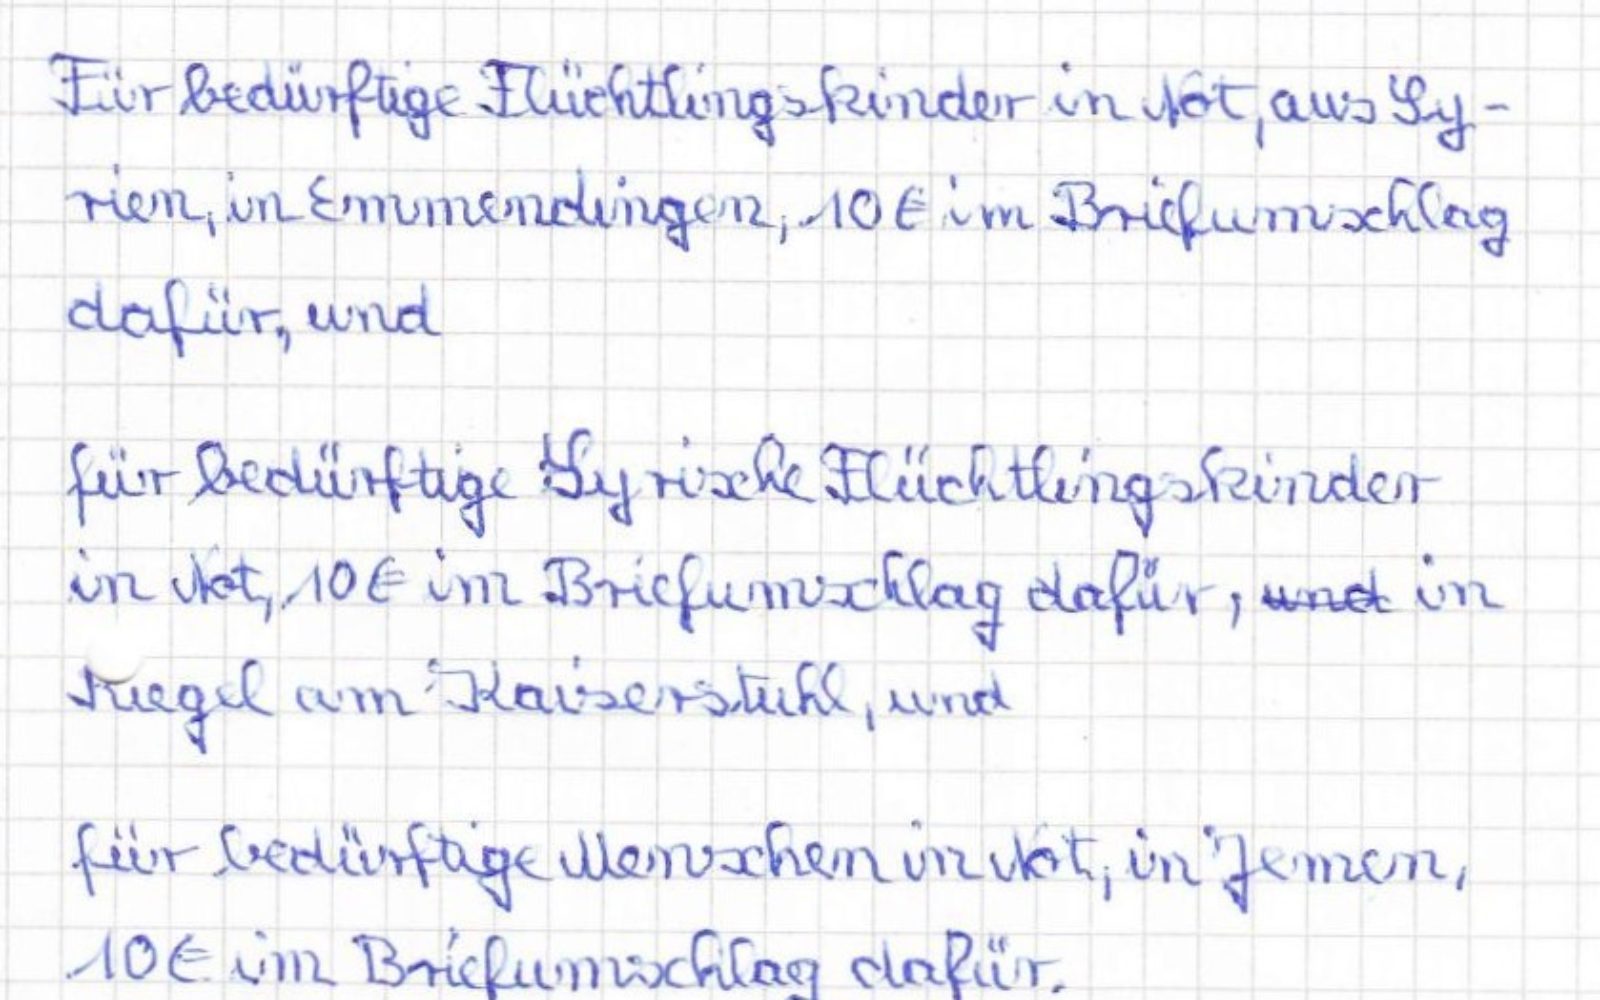 Für bedürftige Flüchtlingskinder in Not, aus Sy-
rien, in Emmendingen, 10 € im Briefumschlag
dafür, und
für bedürftige Syrische Flüchtlingskinder
in Not, 10 € im Briefumschlag dafür, und in
Riegel am Kaiserstuhl, und
für bedürftige Menschen in Not, in Jemen,
10 € im Briefumschlag dafür.